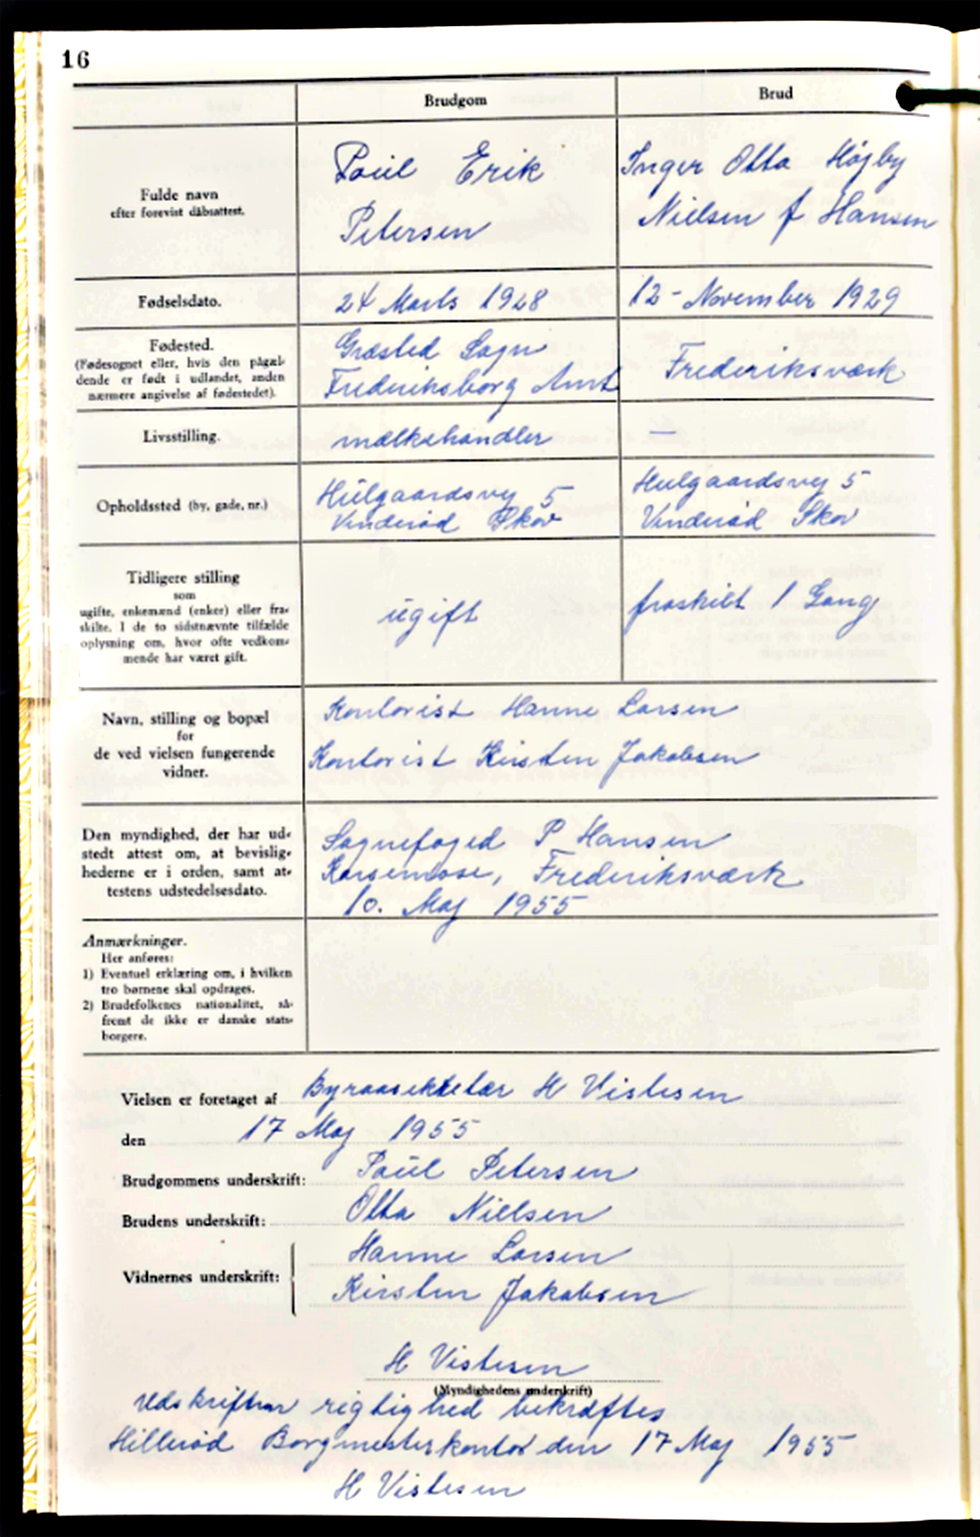 16
Brudgom
Brud
Fulde navn
efter forevist dåbsattest.
Poul Erik
Petersen
Inger Otta Højby
Nielsen f Hansen
Fødselsdato.
24 Marts 1928
12 - November 1929
Fødested.
(Fødesognet eller, hvis den pågæl-
dende er født i udlandet, anden
nærmere angivelse af fødestedet).
Græsted Sogn
Frederiksborg Amt
Frederiksværk
Livsstilling.
mælkehandler
—
Opholdssted (by, gade, nr.)
Hulgaardsvej 5
Vinderød Skov
Hulgaardsvej 5
Vinderød Skov
Tidligere stilling
som
ugifte, enkemænd (enker) eller fra-
skilte. I de to sidstnævnte tilfælde
oplysning om, hvor ofte vedkom-
mende har været gift.
ugift
fraskilt 1 Gang
Navn, stilling og bopæl
for
de ved vielsen fungerende
vidner.
Kontorist Hanne Larsen
Kontorist Kirsten Jakobsen
Den myndighed, der har ud-
stedt attest om, at bevislig-
hederne er i orden, samt at-
testens udstedelsesdato.
Sognefoged P Hansen
Karsemose, Frederiksværk
10. Maj 1955
Anmærkninger.
Her anføres:
1) Eventuel erklæring om, i hvilken
tro børnene skal opdrages.
2) Brudefolkenes nationalitet, så-
fremt de ikke er danske stats-
borgere.
Vielsen er foretaget af Byraasekketær H Vistesen
den 17 Maj 1955
Brudgommens underskrift: Poul Petersen
Brudens underskrift: Otta Nielsen
Vidnernes underskrift:
Hanne Larsen
Kirsten Jakobsen
H Vistesen
(Myndighedens underskrift)
Udskriftens rigtighed bekræftes
Hillerød Borgmesterkontor den 17 Maj 1955
H Vistesen